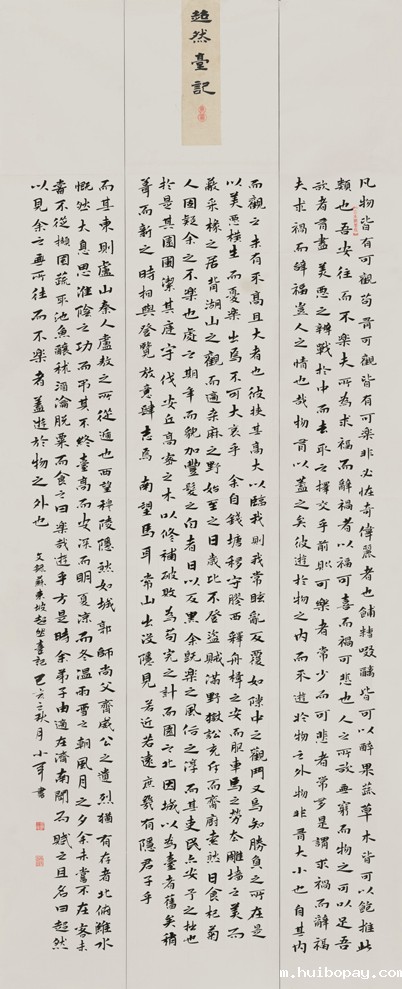 超然臺記
凡物皆有可觀苟有可觀皆有可樂非必怪奇偉麗者也餔糟啜醨皆可以醉果蔬草木皆可以飽推此
類也吾安往而不樂夫所為求福而辭禍者以福可喜而禍可悲也人之所欲無窮而物之可以足吾
欲者有盡美惡之辨戰於中而去取之擇交乎前則可樂者常少而可悲者常多是謂求禍而辭福
夫求禍而辭福豈人之情也哉物有以蓋之矣彼遊於物之內而不遊於物之外物非有大小也自其內
而觀之未有不高且大者也彼挾其高大以臨我則我常眩亂反覆如隙中之觀鬥又烏知勝負之所在是
以美惡橫生而憂樂出焉不可大哀乎余自錢塘移守膠西釋舟楫之安而服車馬之勞去雕墻之美而
蔽采椽之居背湖山之觀而適桑麻之野始至之日歲比不登盜賊滿野獄訟充斥而齋廚索然日食杞菊
人固疑余之不樂也處之期年而貌加豐髮之白者日以反黑余既樂之風俗之淳而其吏民亦安予之拙也
於是其園圃潔其庭宇伐安丘高密之木以修補破敗為苟完之計而園之北因城以為臺者舊矣稍
葺而新之時相與登覽放意肆志焉南望馬耳常山出沒隱見若近若遠庶幾有隱君子乎
而其東則盧山秦人盧敖之所從遁也西望穆陵隱然如城郭師尚父齊威公之遺烈猶有存者北俯濰水
慨然大息思淮陰之功而弔其不終臺高而安深而明夏涼而冬溫雨雪之朝風月之夕余未嘗不在客未
嘗不從擷園蔬取池魚釀秫酒瀹脫粟而食之曰樂哉遊乎方是時余弟子由適在濟南聞而賦之且名曰超然
以見余之無所往而不樂者蓋遊於物之外也
蘇東坡超然臺記己亥之秋月小軍書
m.huibopay.com